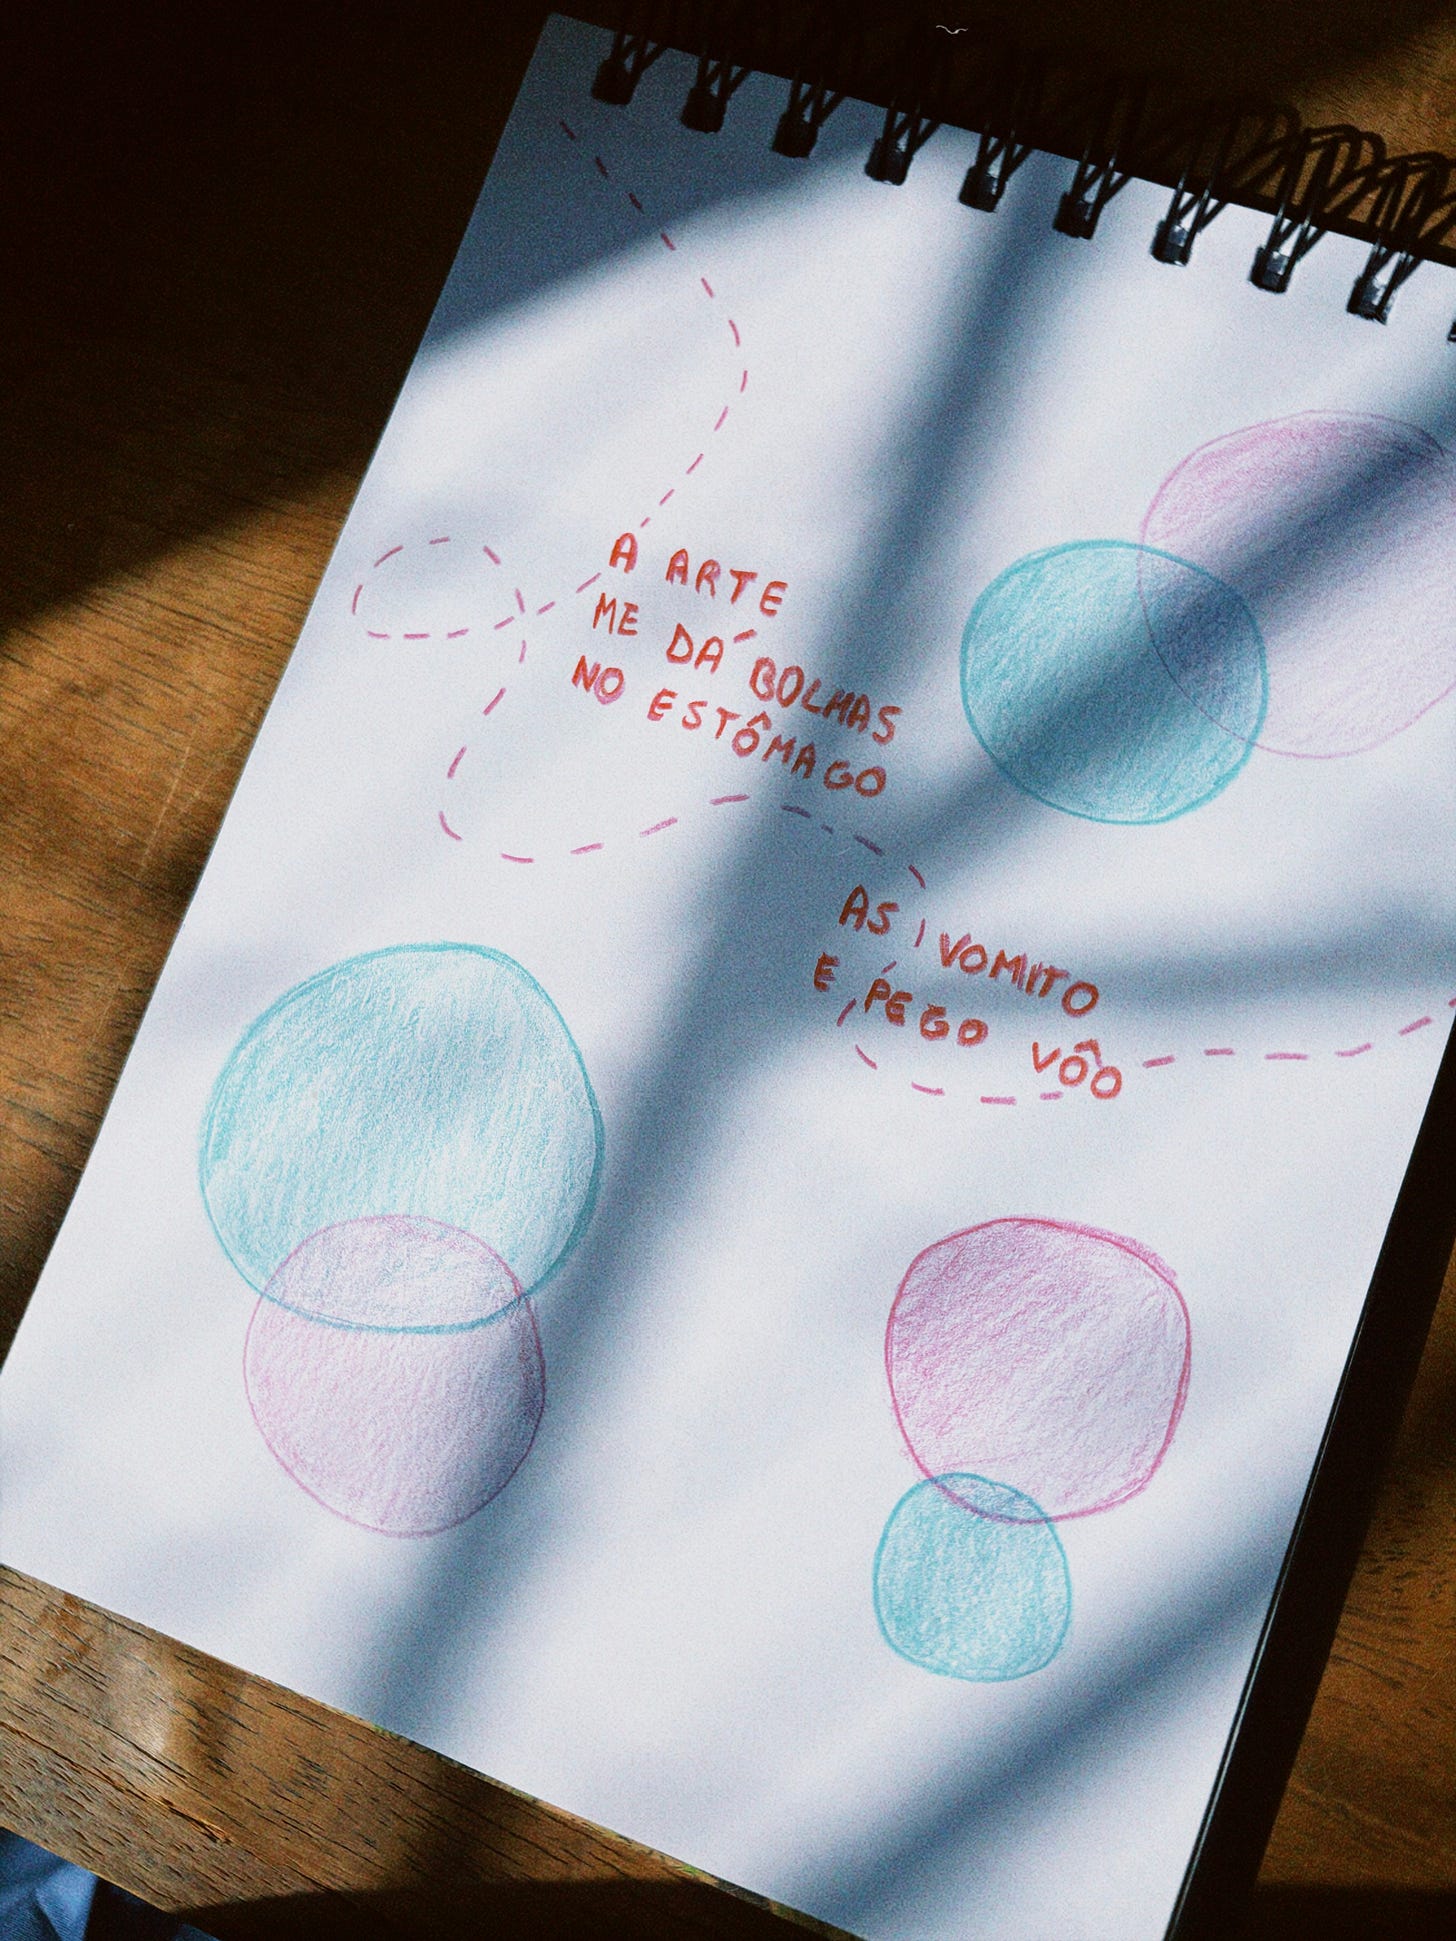 A ARTE
ME DÁ BOLHAS
NO ESTÔMAGO
AS VOMITO
E PEGO VÔO